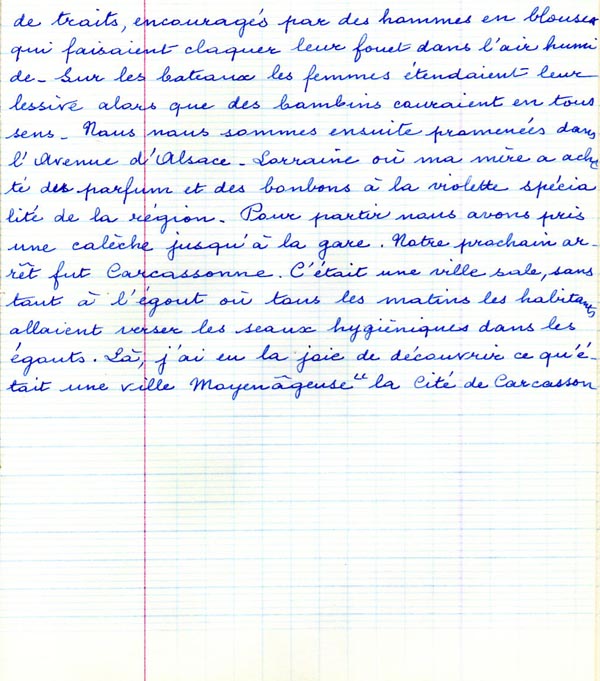 de traits, encouragés par des hommes en blouses
qui faisaient claquer leur fouet dans l'air humi
de - Sur les bateaux les femmes étendaient leur
lessive alors que des bambins couraient en tous
sens - Nous nous sommes ensuite promenées dans
l'Avenue d'Alsace - Lorraine où ma mère a ache
té des parfum et des bonbons à la violette spécia
lité de la région - Pour partir nous avons pris
une calèche jusqu'à la gare. Notre prochain ar-
rêt fut Carcassonne. C'était une ville sale, sans
tout à l'égout où tous les matins les habitants
allaient verser les seaux hygiéniques dans les
égouts. Là, j'ai eu la joie de découvrir ce qu'é-
tait une ville Moyenâgeuse "la Cité de Carcasson